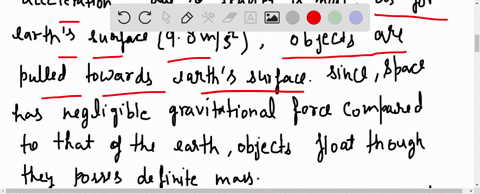 acceleration for
earth's surface (9.8m/s²), objects are
pulled towards earth's surface. since, space
has negligible gravitational force compared
to that of the earth, objects float though
they posses definite mass.